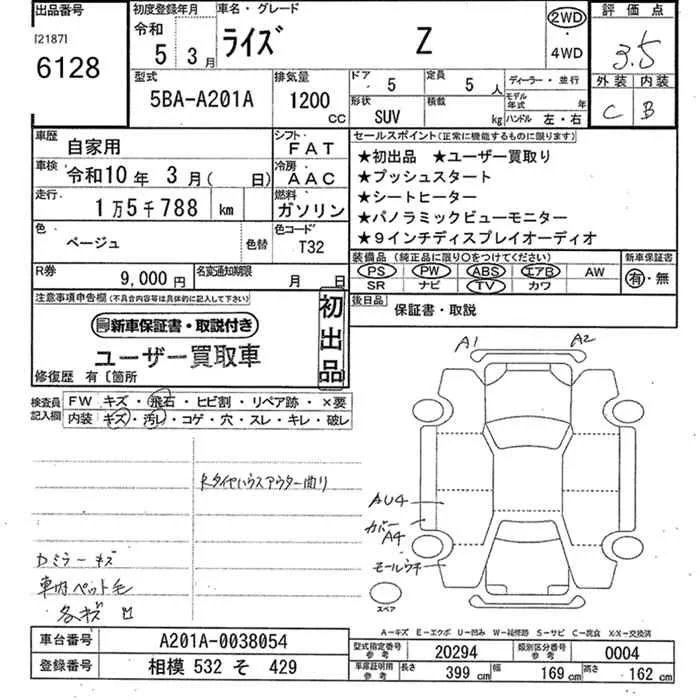 出品番号 初度登録年月 車名・グレード 2WD 評価点
[2187] 令和 ライズ Z ・ 3.5
6128 5 3月 4WD 外装 内装
型式 排気量 ドア 5 定員 5人 ディーラー・並行 C B
5BA-A201A 1200 CC 形状 SUV 積載 kg モデル年式 年 ハンドル 左・右
車歴 自家用 シフト FAT セールスポイント(正常に機能するものに限ります)
車検 令和10年 3月( 日) 冷房 AAC ★初出品 ★ユーザー買取り
走行 1万5千788 km 燃料 ガソリン ★プッシュスタート
★シートヒーター
★パノラミックビューモニター
色 ベージュ 色替 色コード T32 ★9インチディスプレイオーディオ
R券 9,000円 名変通知期限 月 日 装備品(純正品に限り○をつけてください) 新車保証書
PS PW ABS エアB AW 有・無
SR ナビ TV カワ
注意事項申告欄(不具合内容等は具体的に記入して下さい) 初出品 後日品 保証書・取説
新車保証書・取説付き
ユーザー買取車
修復歴 有〔箇所
検査員記入欄 FW キズ・飛石・ヒビ割・リペア跡・×要
内装 キズ・汚レ・コゲ・穴・スレ・キレ・破レ
A1 A2
タイヤハウスアウター曲り
AU4
カバー
A4
モールウキ
カミラーキズ
車内ペット毛
各キズ
スペア
A-キズ E-エクボ U-凹み W-補修跡 S-サビ C-腐食 X・XX-交換済
車台番号 A201A-0038054 型式指定番号 参考 20294 類別区分番号 参考 0004
登録番号 相模 532 そ 429 車庫証明用 参考 長さ 399 cm 幅 169 cm 高さ 162 cm